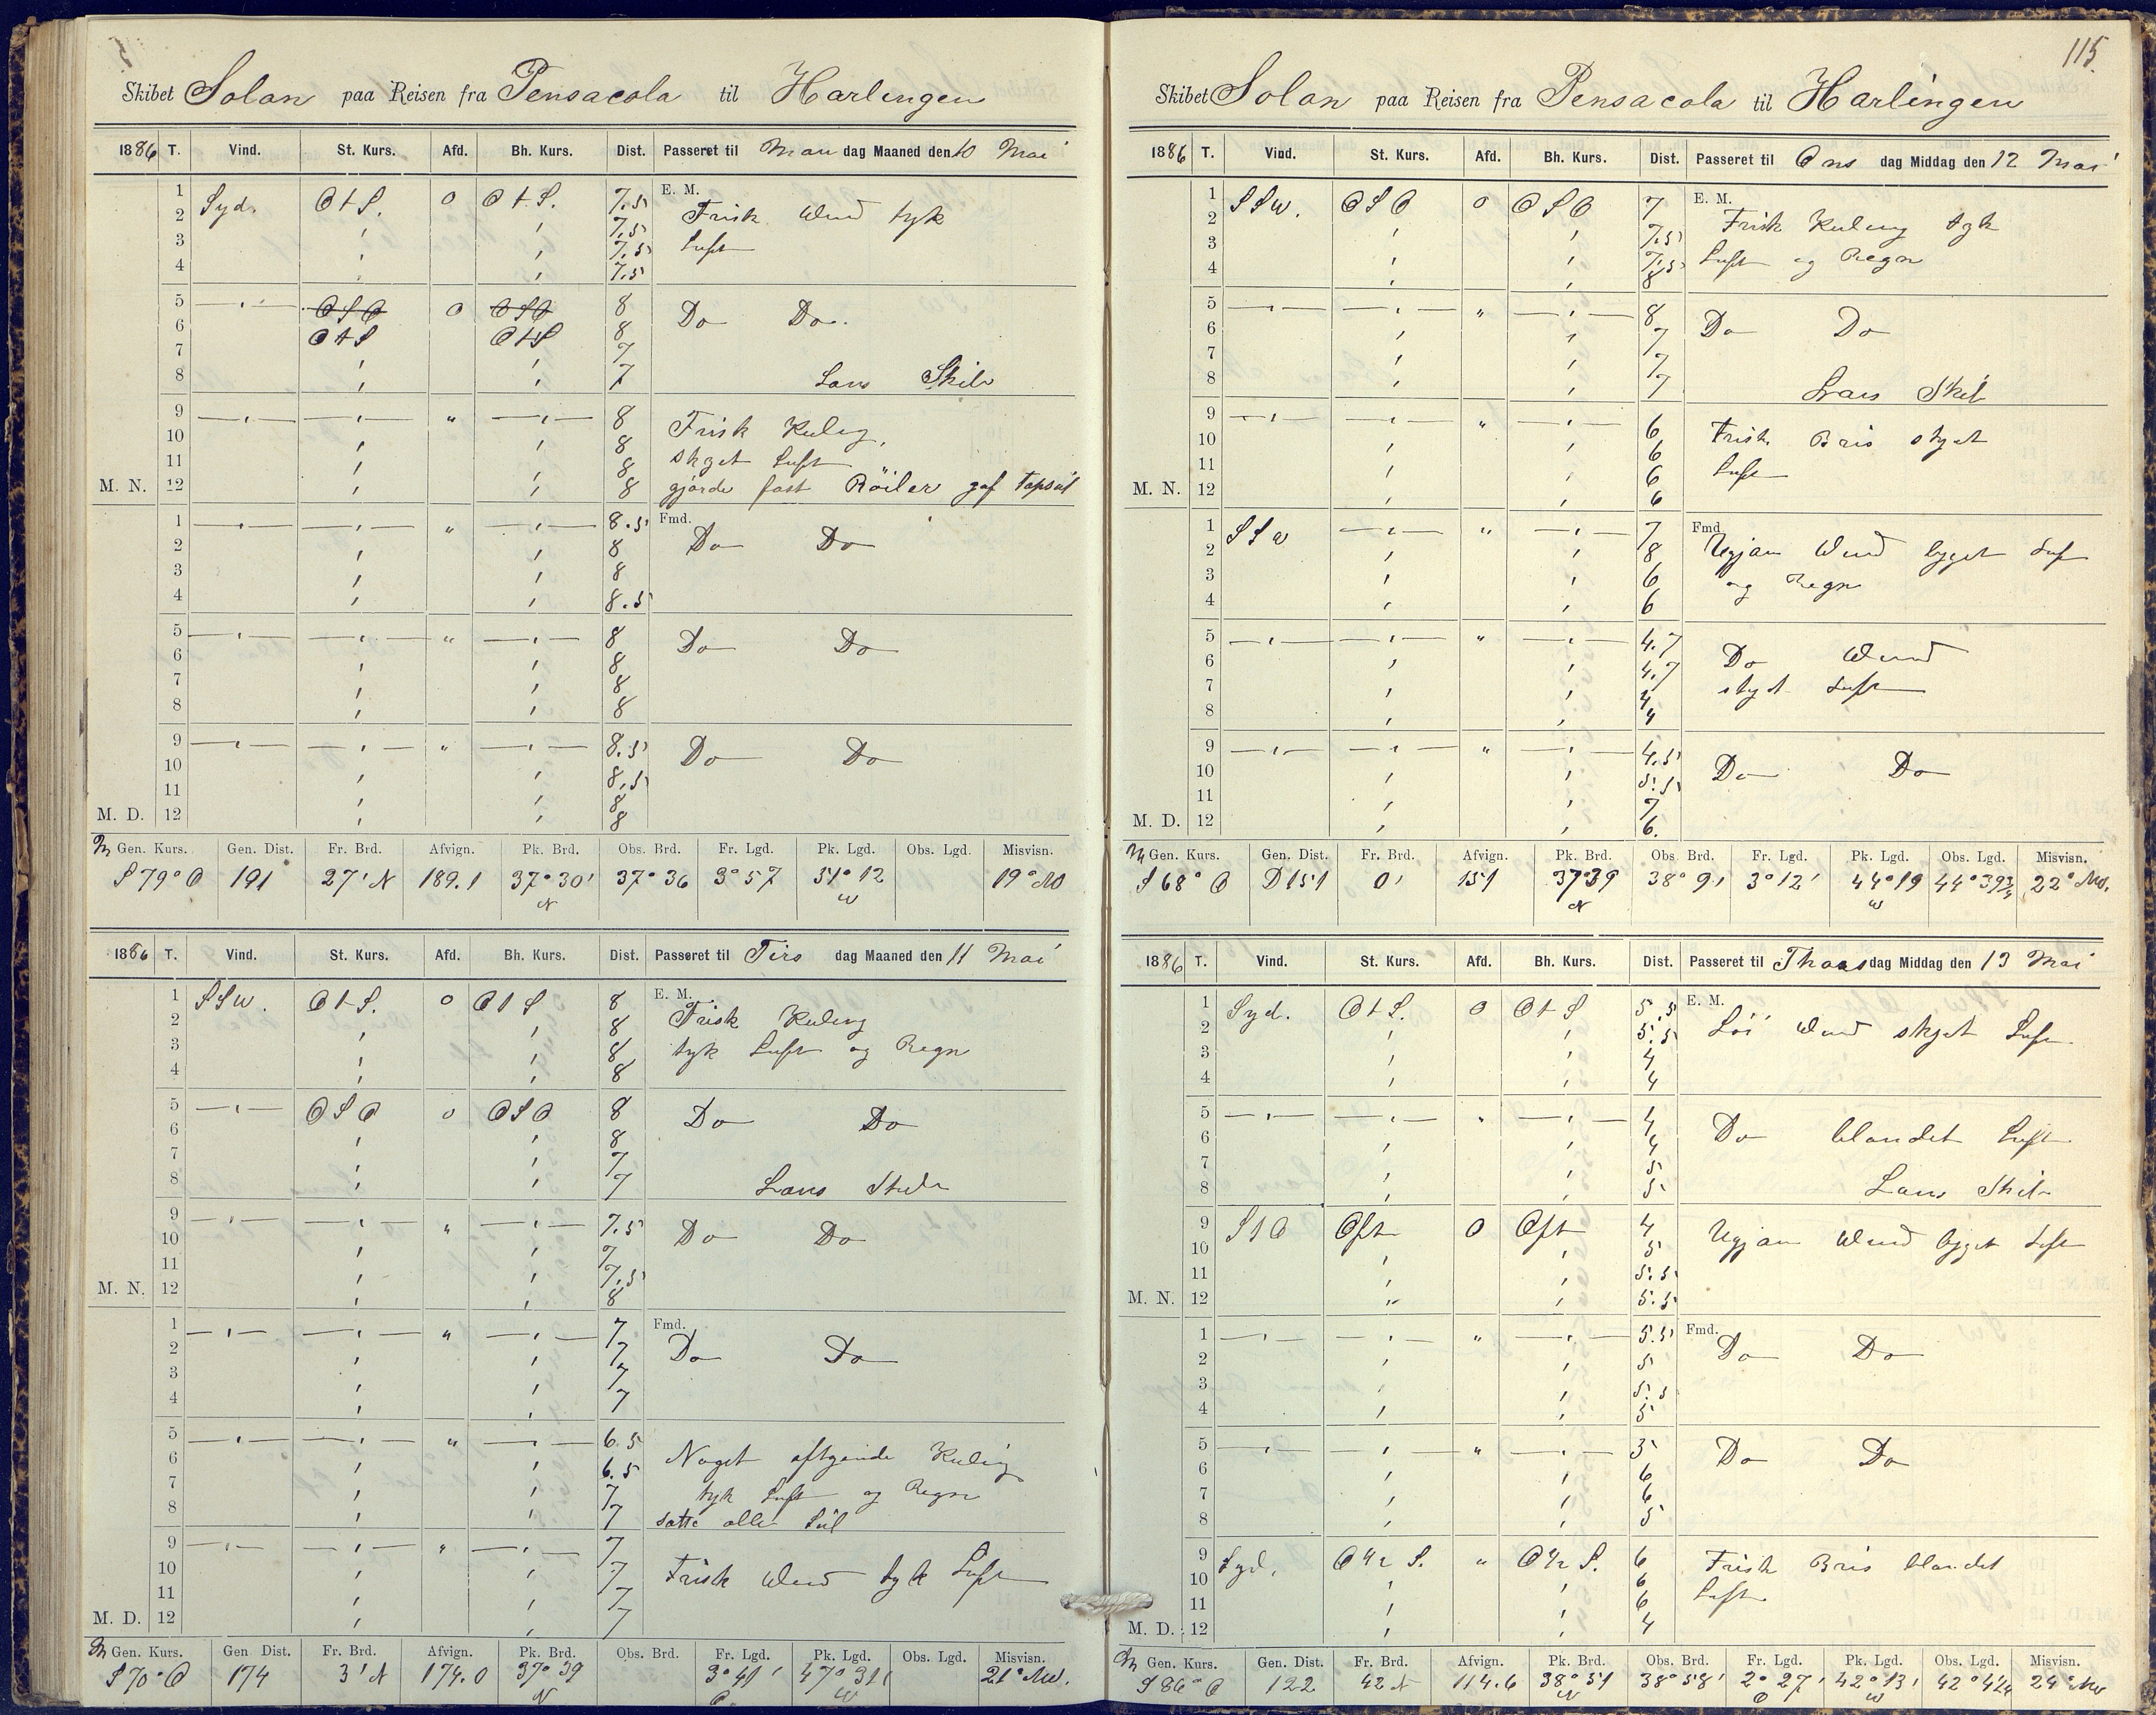 Skibet Solon paa Reisen fra Pensacola til Harlingen
1886 T. Vind. St. Kurs. Afd. Bh. Kurs. Dist. Passeret til Man dag Maaned den 10 Mai
1 Syd. O t S. 0 O t S. 7.5 E. M. Frisk Wind tyk
2 7.5
3 7.5 Luft
4 7.5
5 O S O 0 O S O 8 Do Do.
6 O t S O t S 8
7 7
8 7 Lans Skib
9 " 8 Frisk Kuling,
10 8 skyet Luft
11 8
M. N. 12 8 gjorde fast Röiler gaf Topseil
1 " 8.5 Fmd. Do Do
2 8
3 8
4 8.5
5 " 8 Do Do
6 8
7 8
8 8
9 " 8.5 Do Do
10 8.5
11 8
M. D. 12 8
M Gen. Kurs. Gen. Dist. Fr. Brd. Afvign. Pk. Brd. Obs. Brd. Fr. Lgd. Pk. Lgd. Obs. Lgd. Misvisn.
S 79° O 191 27' N 189.1 37° 30' N 37° 36 3° 57 51° 12 W 19° NW
1886 T. Vind. St. Kurs. Afd. Bh. Kurs. Dist. Passeret til Tirs dag Maaned den 11 Mai
1 SSW. O t S. 0 O t S 8 E. M. Frisk Kuling
2 8
3 8 tyk Luft og Regn
4 8
5 O S O 0 O S O 8 Do Do
6 8
7 7
8 7 Lans Skib
9 " 7.5 Do Do
10 7
11 7.5
M. N. 12 8
1 " 7 Fmd. Do Do
2 7
3 7
4 7
5 " 6.5 Noget aftgende Kuling
6 6.5
7 7 tyk Luft og Regn
8 7 satte alle Seil
9 " 7
10 7 Frisk Wind tyk Luft
11 7
M. D. 12 7
M Gen. Kurs. Gen Dist. Fr. Brd. Afvign. Pk. Brd. Obs. Brd. Fr. Lgd. Pk. Lgd. Obs. Lgd. Misvisn.
S 70° O 174 3' N 174.0 37° 39 N 3° 41' O 47° 31' W 21° NW.
115.
Skibet Solon paa Reisen fra Pensacola til Harlingen
1886 T. Vind. St. Kurs. Afd. Bh. Kurs. Dist. Passeret til Ons dag Middag den 12 Mai
1 SSW. O S O 0 O S O 7 E. M. Frisk Kuling tyk
2 7.5
3 7.5 Luft og Regn
4 8
5 " 8 Do Do
6 7
7 7
8 7 Lans Skib
9 " 6 Frisk Bris skyet
10 6
11 6 Luft
M. N. 12 6
1 SSW " 7 Fmd Ugjan Wind bygget Luft
2 8
3 6 og Regn
4 6
5 " 4.7 Do Wind
6 4.7
7 4 skyet Luft
8 4
9 " 4.5 Do Do
10 5.5
11 7
M. D. 12 6.
M Gen. Kurs. Gen. Dist. Fr. Brd. Afvign. Pk. Brd. Obs. Brd. Fr. Lgd. Pk. Lgd. Obs. Lgd. Misvisn.
S 68° O D 151 0' 151 37° 39 N 38° 9' 3° 12' 44° 19 W 44° 39 3/4 22° NW.
1886 T. Vind. St. Kurs. Afd. Bh. Kurs. Dist. Passeret til Thors dag Middag den 13 Mai
1 Syd. O t S. 0 O t S 5.5 E. M. Löi Wind skyet Luft
2 5.5
3 4
4 4
5 " 4 Do blandet Luft
6 4
7 5
8 5 Lans Skib
9 S t O Ost 0 Ost 4 Ugjan Wind bygget Luft
10 5
11 5.5
M. N. 12 5.5
1 " 5.5 Fmd. Do Do
2 5
3 5.5
4 5
5 " 5 Do Do
6 6
7 6
8 5
9 Syd. O 1/2 S. " O 1/2 S. 6 Frisk Bris blandet
10 6
11 6 Luft
M. D. 12 4
M Gen. Kurs. Gen. Dist. Fr. Brd. Afvign. Pk. Brd. Obs. Brd. Fr. Lgd. Pk. Lgd. Obs. Lgd. Misvisn.
S 86° O 122 42 N 114.6 38° 51 N 38° 58' 2° 27' O 42° 13' W 24° NW